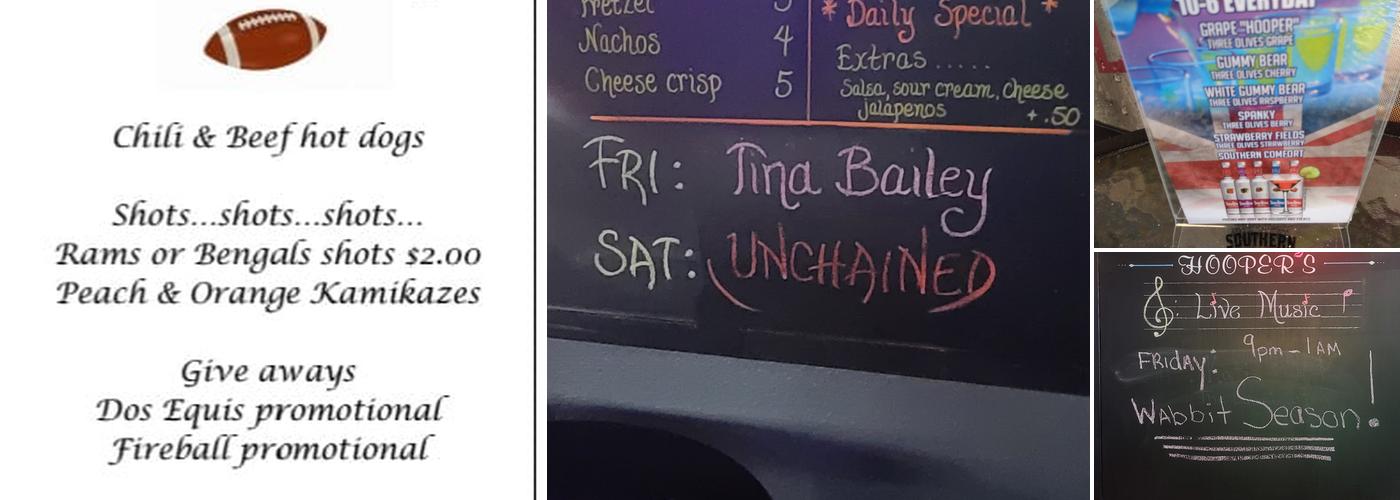 Chili & Beef hot dogs
Shots...shots...shots...
Rams or Bengals shots $2.00
Peach & Orange Kamikazes
Give aways
Dos Equis promotional
Fireball promotional
Pretzel 5
Nachos 4
Cheese crisp 5
* Daily Special *
Extras .....
Salsa, sour cream, cheese
jalapenos +.50
FRI: Tina Bailey
SAT: UNCHAINED
10-6 EVERYDAY
GRAPE "HOOPER"
THREE OLIVES GRAPE
GUMMY BEAR
THREE OLIVES CHERRY
WHITE GUMMY BEAR
THREE OLIVES RASPBERRY
SPANKY
THREE OLIVES BERRY
STRAWBERRY FIELDS
THREE OLIVES STRAWBERRY
SOUTHERN COMFORT
SOUTHERN
HOOPER'S
Live Music
9pm-1AM
FRIDAY:
Wabbit Season!